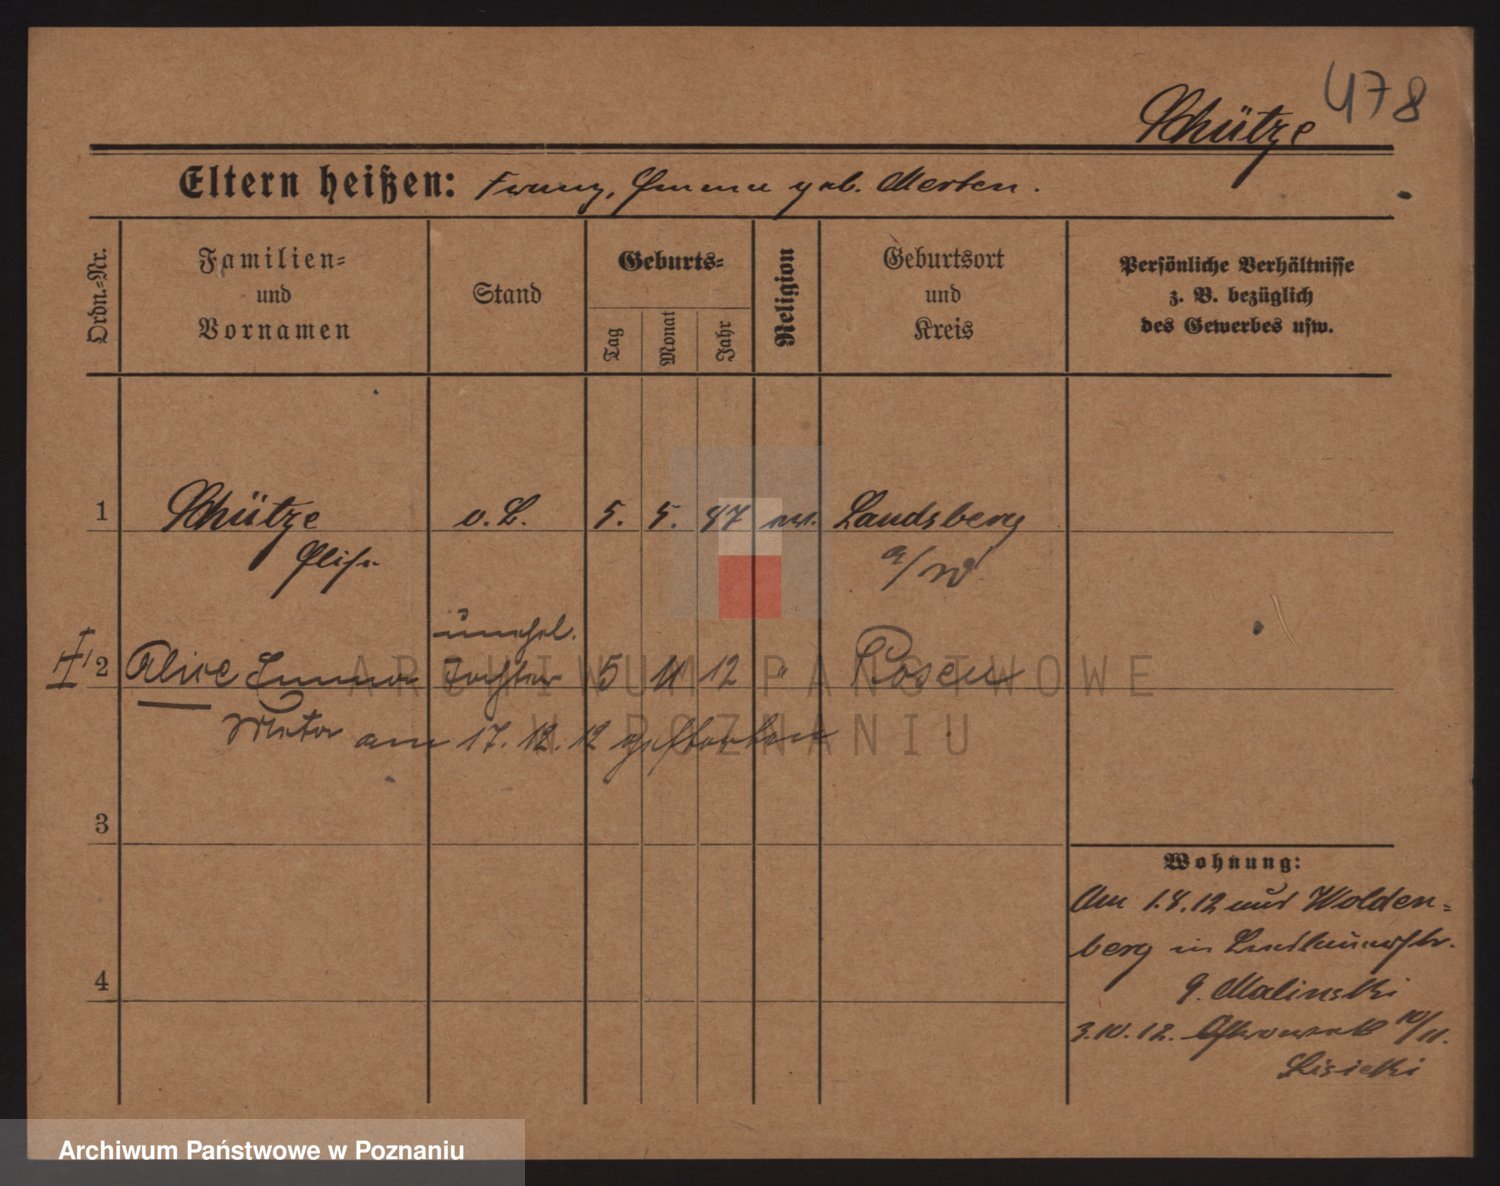 478
Schütze
Eltern heißen: Franz, Emma geb. Merten.
Ordn.-Nr.
Familien-
und
Vornamen
Stand
Geburts-
Tag
Monat
Jahr
Religion
Geburtsort
und
Kreis
Persönliche Verhältnisse
z. B. bezüglich
des Gewerbes usw.
1 Schütze o. 5. 5. 87 ev. Landsberg
Elise a/W.
unehel.
2 Alice Emma Tochter 5 11 12 " Posen
am 17. 12. 12 gestorben
3
4
Wohnung:
Am 1.8.12 aus Wolden-
berg in
G. Malinski
3.10.12. 10/11.
Lisiecki
ARCHIWUM PAŃSTWOWE
W POZNANIU
Archiwum Państwowe w Poznaniu